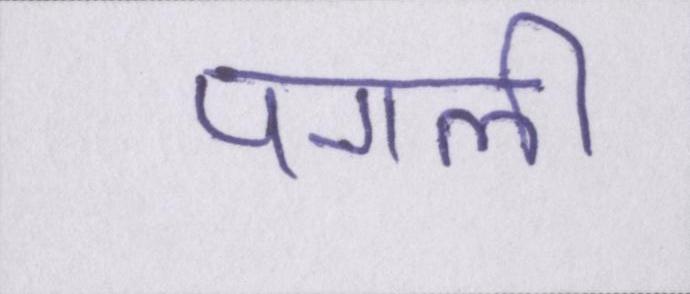 पगली